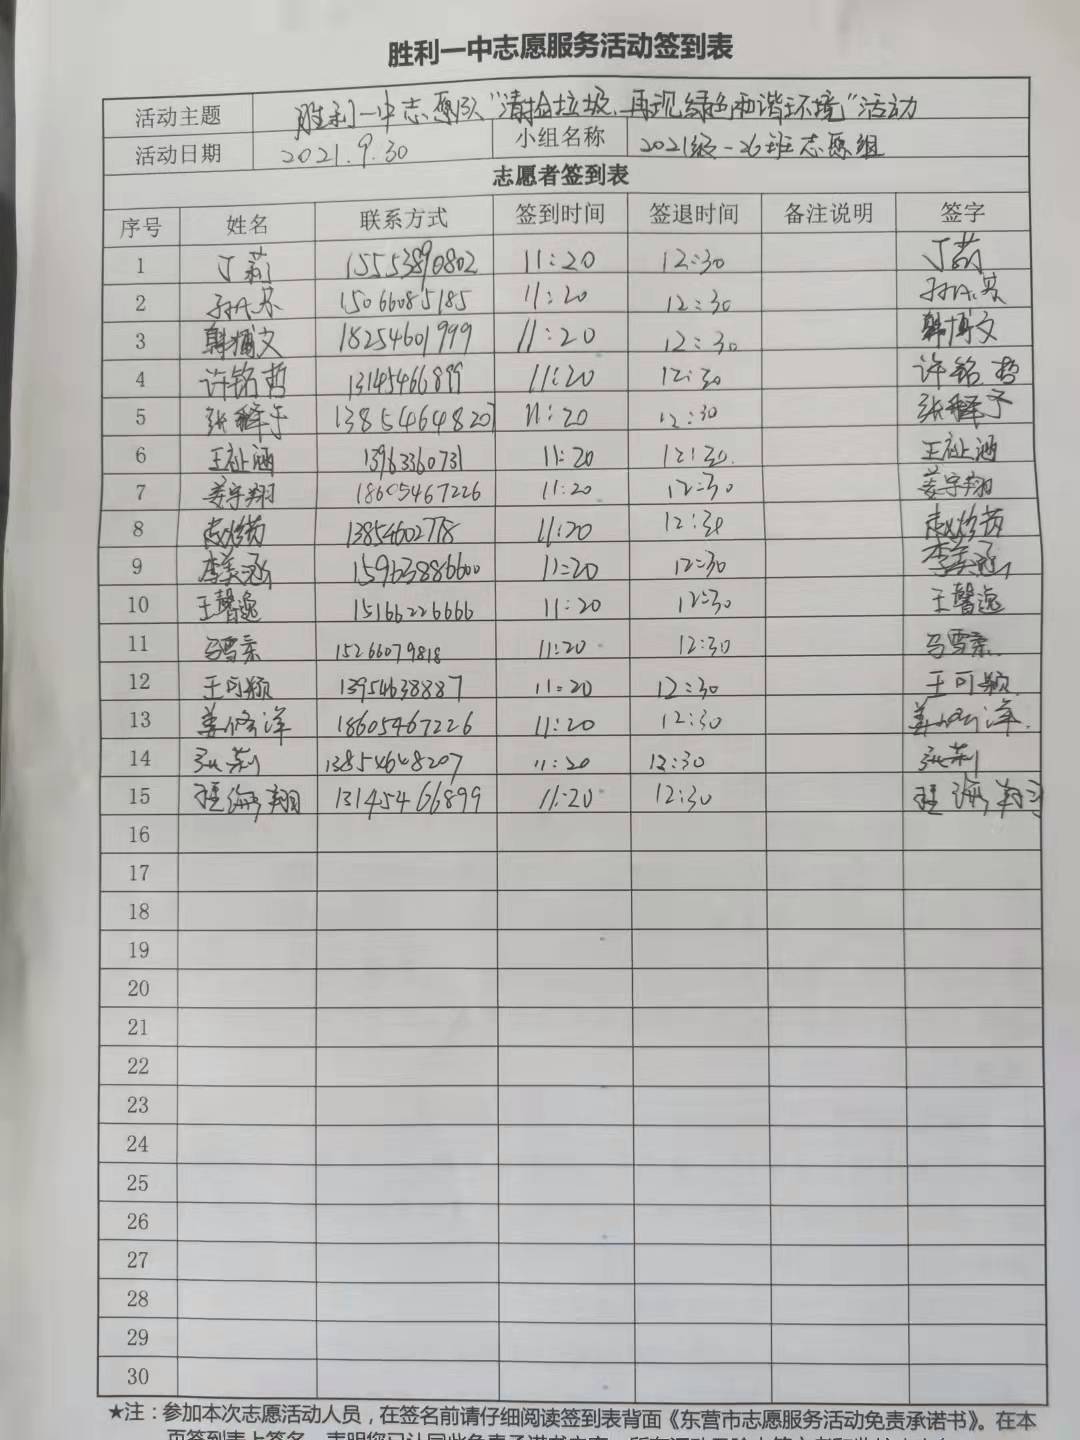 胜利一中志愿服务活动签到表
活动主题 胜利一中志愿队"清捡垃圾、再现绿色和谐环境"活动
活动日期 2021.9.30 小组名称 2021级-26班志愿组
志愿者签到表
序号 姓名 联系方式 签到时间 签退时间 备注说明 签字
1 丁莉 15553890802 11:20 12:30 丁莉
2 15066085185 11:20 12:30
3 韩博文 18254601999 11:20 12:30 韩博文
4 许铭哲 13145466899 11:20 12:30 许铭哲
5 张释予 13854648207 11:20 12:30 张释予
6 王祉涵 13963360731 11:20 12:30 王祉涵
7 姜宇翔 18605467226 11:20 12:30 姜宇翔
8 13854602778 11:20 12:30
9 李美涵 15963886600 11:20 12:30 李美涵
10 王馨逸 15166226666 11:20 12:30 王馨逸
11 马雪柔 15266079818 11:20 12:30 马雪柔
12 王可颖 13954638887 11:20 12:30 王可颖
13 姜修洋 18605467226 11:20 12:30 姜修洋
14 张莉 13854648207 11:20 12:30 张莉
15 程海翔 13145466899 11:20 12:30 程海翔
16
17
18
19
20
21
22
23
24
25
26
27
28
29
30
★注：参加本次志愿活动人员，在签名前请仔细阅读签到表背面《东营市志愿服务活动免责承诺书》。在本